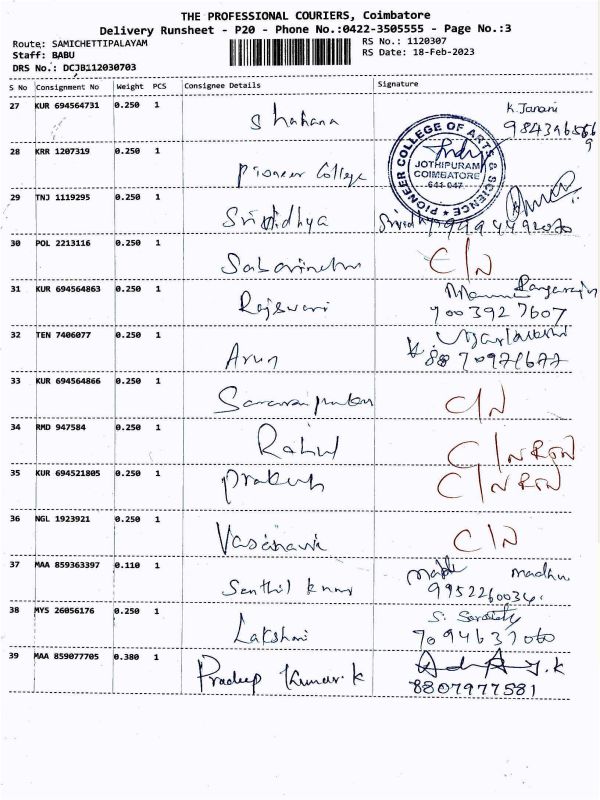 THE PROFESSIONAL COURIERS, Coimbatore
Delivery Runsheet - P20 - Phone No.:0422-3505555 - Page No.:3
Route: SAMICHETTIPALAYAM
Staff: BABU
DRS No.: DCJB112030703
RS No.: 1120307
RS Date: 18-Feb-2023
S No Consignment No Weight PCS Consignee Details Signature
27 KUR 694564731 0.250 1 Shahana K.Janani
28 KRR 1207319 0.250 1 Pioneer College
PIONEER COLLEGE OF ARTS & SCIENCE
JOTHIPURAM
COIMBATORE
641 047
29 TNJ 1119295 0.250 1 Srividhya Srividhya
30 POL 2213116 0.250 1 C/N
31 KUR 694564863 0.250 1 Rajswari
9003927607
32 TEN 7406077 0.250 1 Arun
33 KUR 694564866 0.250 1 C/N
34 RMD 947584 0.250 1 Rahul C/N RTN
35 KUR 694521805 0.250 1 Prakash C/N RTN
36 NGL 1923921 0.250 1 C/N
37 MAA 859363397 0.110 1 Senthil kumar Madhu
9952260034
38 MYS 26056176 0.250 1 Lakshmi
39 MAA 859077705 0.380 1 Pradeep Kumar.k
8807977581